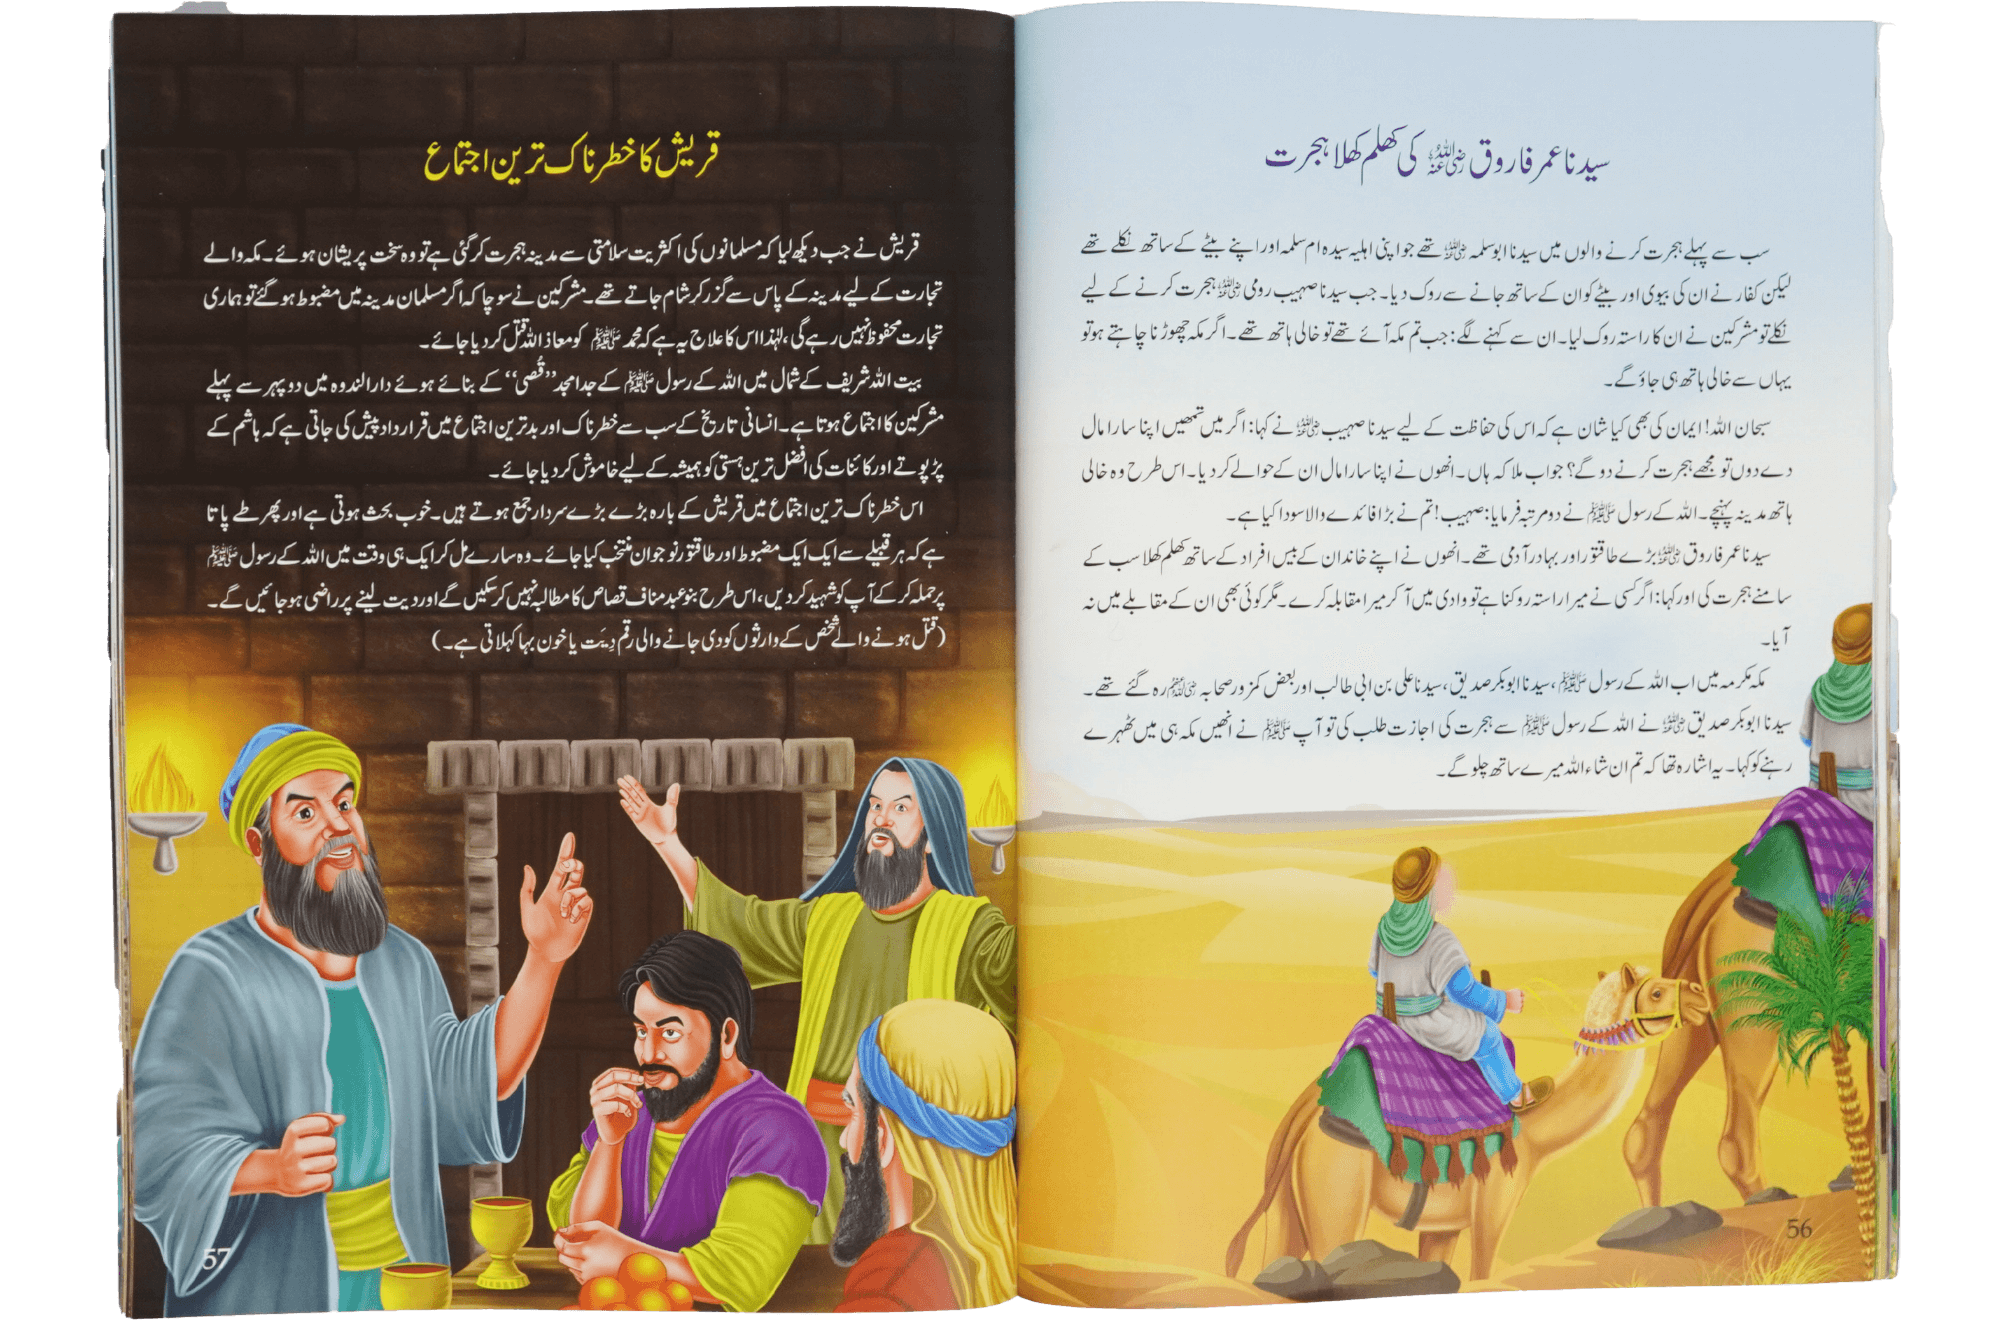 سیدنا عمر فاروق رضی اللہ عنہ کی کھلم کھلا ہجرت
سب سے پہلے ہجرت کرنے والوں میں سیدنا ابوسلمہ رضی اللہ عنہ تھے جو اپنی اہلیہ سیدہ ام سلمہ اور اپنے بیٹے کے ساتھ نکلے تھے
لیکن کفار نے ان کی بیوی اور بیٹے کو ان کے ساتھ جانے سے روک دیا۔ جب سیدنا صہیب رومی رضی اللہ عنہ ہجرت کرنے کے لیے
نکلے تو مشرکین نے ان کا راستہ روک لیا۔ ان سے کہنے لگے: جب تم مکہ آئے تھے تو خالی ہاتھ تھے۔ اگر مکہ چھوڑنا چاہتے ہو تو
یہاں سے خالی ہاتھ ہی جاؤ گے۔
سبحان اللہ! ایمان کی بھی کیا شان ہے کہ اس کی حفاظت کے لیے سیدنا صہیب رضی اللہ عنہ نے کہا: اگر میں تمھیں اپنا سارا مال
دے دوں تو مجھے ہجرت کرنے دو گے؟ جواب ملا کہ ہاں۔ انھوں نے اپنا سارا مال ان کے حوالے کر دیا۔ اس طرح وہ خالی
ہاتھ مدینہ پہنچے۔ اللہ کے رسول ﷺ نے دو مرتبہ فرمایا: صہیب! تم نے بڑا فائدے والا سودا کیا ہے۔
سیدنا عمر فاروق رضی اللہ عنہ بڑے طاقتور اور بہادر آدمی تھے۔ انھوں نے اپنے خاندان کے بیس افراد کے ساتھ کھلم کھلا سب کے
سامنے ہجرت کی اور کہا: اگر کسی نے میرا راستہ روکنا ہے تو وادی میں آ کر میرا مقابلہ کرے۔ مگر کوئی بھی ان کے مقابلے میں نہ
آیا۔
مکہ مکرمہ میں اب اللہ کے رسول ﷺ، سیدنا ابوبکر صدیق، سیدنا علی بن ابی طالب اور بعض کمزور صحابہ رضی اللہ عنہم رہ گئے تھے۔
سیدنا ابوبکر صدیق رضی اللہ عنہ نے اللہ کے رسول ﷺ سے ہجرت کی اجازت طلب کی تو آپ ﷺ نے انھیں مکہ ہی میں ٹھہرے
رہنے کو کہا۔ یہ اشارہ تھا کہ تم ان شاء اللہ میرے ساتھ چلو گے۔
56
قریش کا خطرناک ترین اجتماع
قریش نے جب دیکھ لیا کہ مسلمانوں کی اکثریت سلامتی سے مدینہ ہجرت کر گئی ہے تو وہ سخت پریشان ہوئے۔ مکہ والے
تجارت کے لیے مدینہ کے پاس سے گزر کر شام جاتے تھے۔ مشرکین نے سوچا کہ اگر مسلمان مدینہ میں مضبوط ہو گئے تو ہماری
تجارت محفوظ نہیں رہے گی، لہٰذا اس کا علاج یہ ہے کہ محمد ﷺ کو معاذ اللہ قتل کر دیا جائے۔
بیت اللہ شریف کے شمال میں اللہ کے رسول ﷺ کے جدامجد ”قُصی“ کے بنائے ہوئے دارالندوہ میں دوپہر سے پہلے
مشرکین کا اجتماع ہوتا ہے۔ انسانی تاریخ کے سب سے خطرناک اور بدترین اجتماع میں قرارداد پیش کی جاتی ہے کہ ہاشم کے
پڑپوتے اور کائنات کی افضل ترین ہستی کو ہمیشہ کے لیے خاموش کر دیا جائے۔
اس خطرناک ترین اجتماع میں قریش کے بارہ بڑے بڑے سردار جمع ہوتے ہیں۔ خوب بحث ہوتی ہے اور پھر طے پاتا
ہے کہ ہر قبیلے سے ایک ایک مضبوط اور طاقتور نوجوان منتخب کیا جائے۔ وہ سارے مل کر ایک ہی وقت میں اللہ کے رسول ﷺ
پر حملہ کر کے آپ کو شہید کر دیں، اس طرح بنو عبدمناف قصاص کا مطالبہ نہیں کر سکیں گے اور دیت لینے پر راضی ہو جائیں گے۔
(قتل ہونے والے شخص کے وارثوں کو دی جانے والی رقم دِیَت یا خون بہا کہلاتی ہے۔)
57